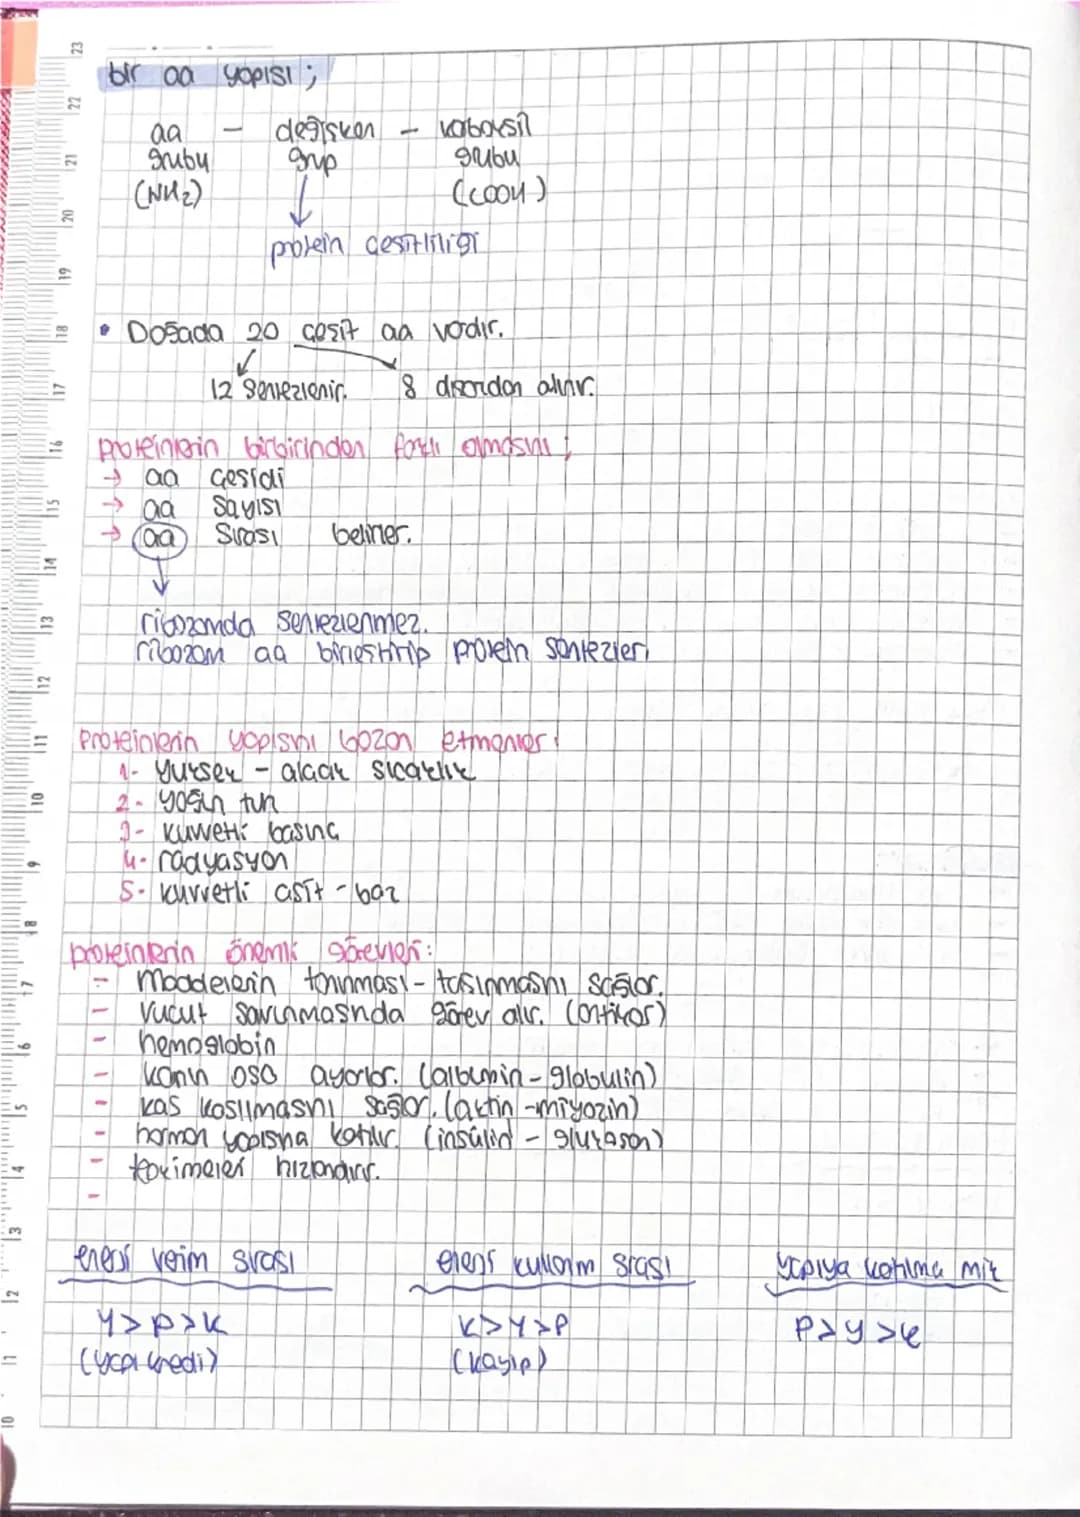 bir aa yapısı ;
aa - değişken - karboksil
grubu grup grubu
(NH2) (COOH)
protein çeşitliliği
• Doğada 20 çeşit aa vardır.
12 sentezlenir. 8 dışardan alınır.
proteinlerin birbirinden farklı olmasını ;
→ aa çeşidi
→ aa sayısı
→ aa sırası belirler.
ribozomda sentezlenmez.
ribozom aa birleştirip protein sentezler.
proteinlerin yapısını bozan etmenler:
1- yüksek - alçak sıcaklık
2- yoğun tuz
3- kuvvetli basınç
4- radyasyon
5- kuvvetli asit - baz
proteinlerin önemli görevleri:
- Maddelerin tanınması - taşınmasını sağlar.
- Vücut savunmasında görev alır. (antikor)
- hemoglobin
- kanın OSB ayarlar. (albumin - globulin)
- kas kasılmasını sağlar. (aktin - miyozin)
- hormon yapısına katılır. (insülin - glukagon)
- tepkimeleri hızlandırır.
-
enerji verim sırası enerji kullanım sırası yapıya katılma mik
Y>P>K K>Y>P P>Y>K
(yapı kredi) (kayıp)
10 11 12 13 14 15 16 17 18 9 10 11 12 13 14 15 16 17 18 19 20 21 22 23